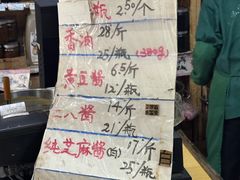 瓶 250/个
香油 28/斤
25/瓶(380g)
黄豆酱 6.5/斤
12/瓶
二八酱 14/斤
21/瓶
纯芝麻酱(白) 17/斤
25/瓶